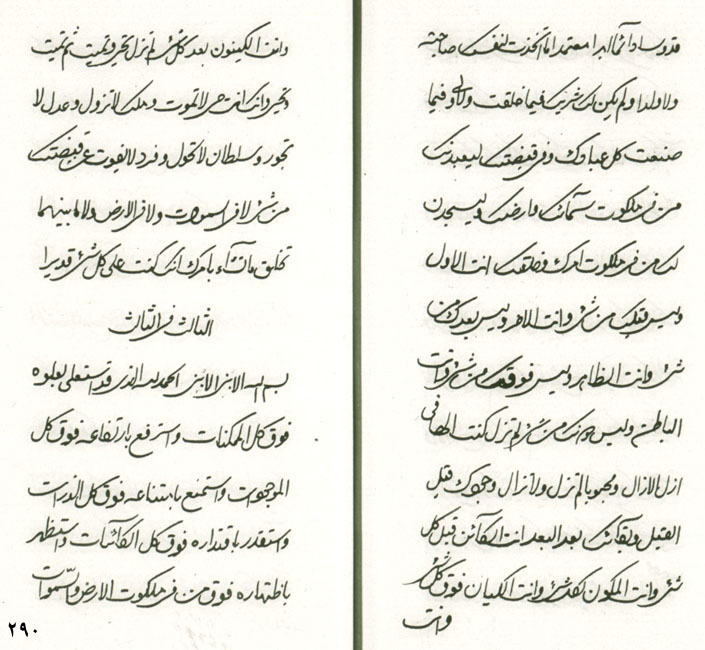 قدوسا دائما ابدا معتمدا ما اتخذت لنفسك صاحبة
ولا ولدا ولم يكن لك شريك فيما خلقت ولا ولي فيما
صنعت كل عبادك وفي قبضتك ليعبدنك
من في ملكوت سمائك وارضك وليسجدن
لك من في ملكوت امرك وخلقك انت الاول
وليس قبلك من شئ وانت الاخر وليس بعدك من
شئ وانت الظاهر وليس فوقك من شئ وانت
الباطن وليس دونك من شئ لم تزل كنت الها في
ازل الازال ومحبوبا لم تزل ولا تزال وجودك قبل
القبل وبقائك بعد البعد انت الكائن قبل كل
شئ وانت المكون لكل شئ وانت الكيان فوق كل شئ
وانت
وانت الكينون بعد كل شئ لم تزل تحيي وتميت ثم تميت
وتحيي وانك انت حي لا تموت وملك لا تزول وعدل لا
تجور وسلطان لا تحول وفرد لا يفوت عن قبضتك
من شئ لا في السموات ولا في الارض ولا ما بينهما
تخلق ما تشاء بامرك انك كنت على كل شئ قديرا
الثالث في الثالث
بسم الله الابنى الابنى الحمد لله الذي قد استعلى بعلوه
فوق كل الممكنات واسترفع بارتفاعه فوق كل
الموجودات واستمنع بامتناعه فوق كل الذرات
واستقدر باقتداره فوق كل الكائنات واستظهر
باظهاره فوق من في ملكوت الارض والسموات
٢٩٠